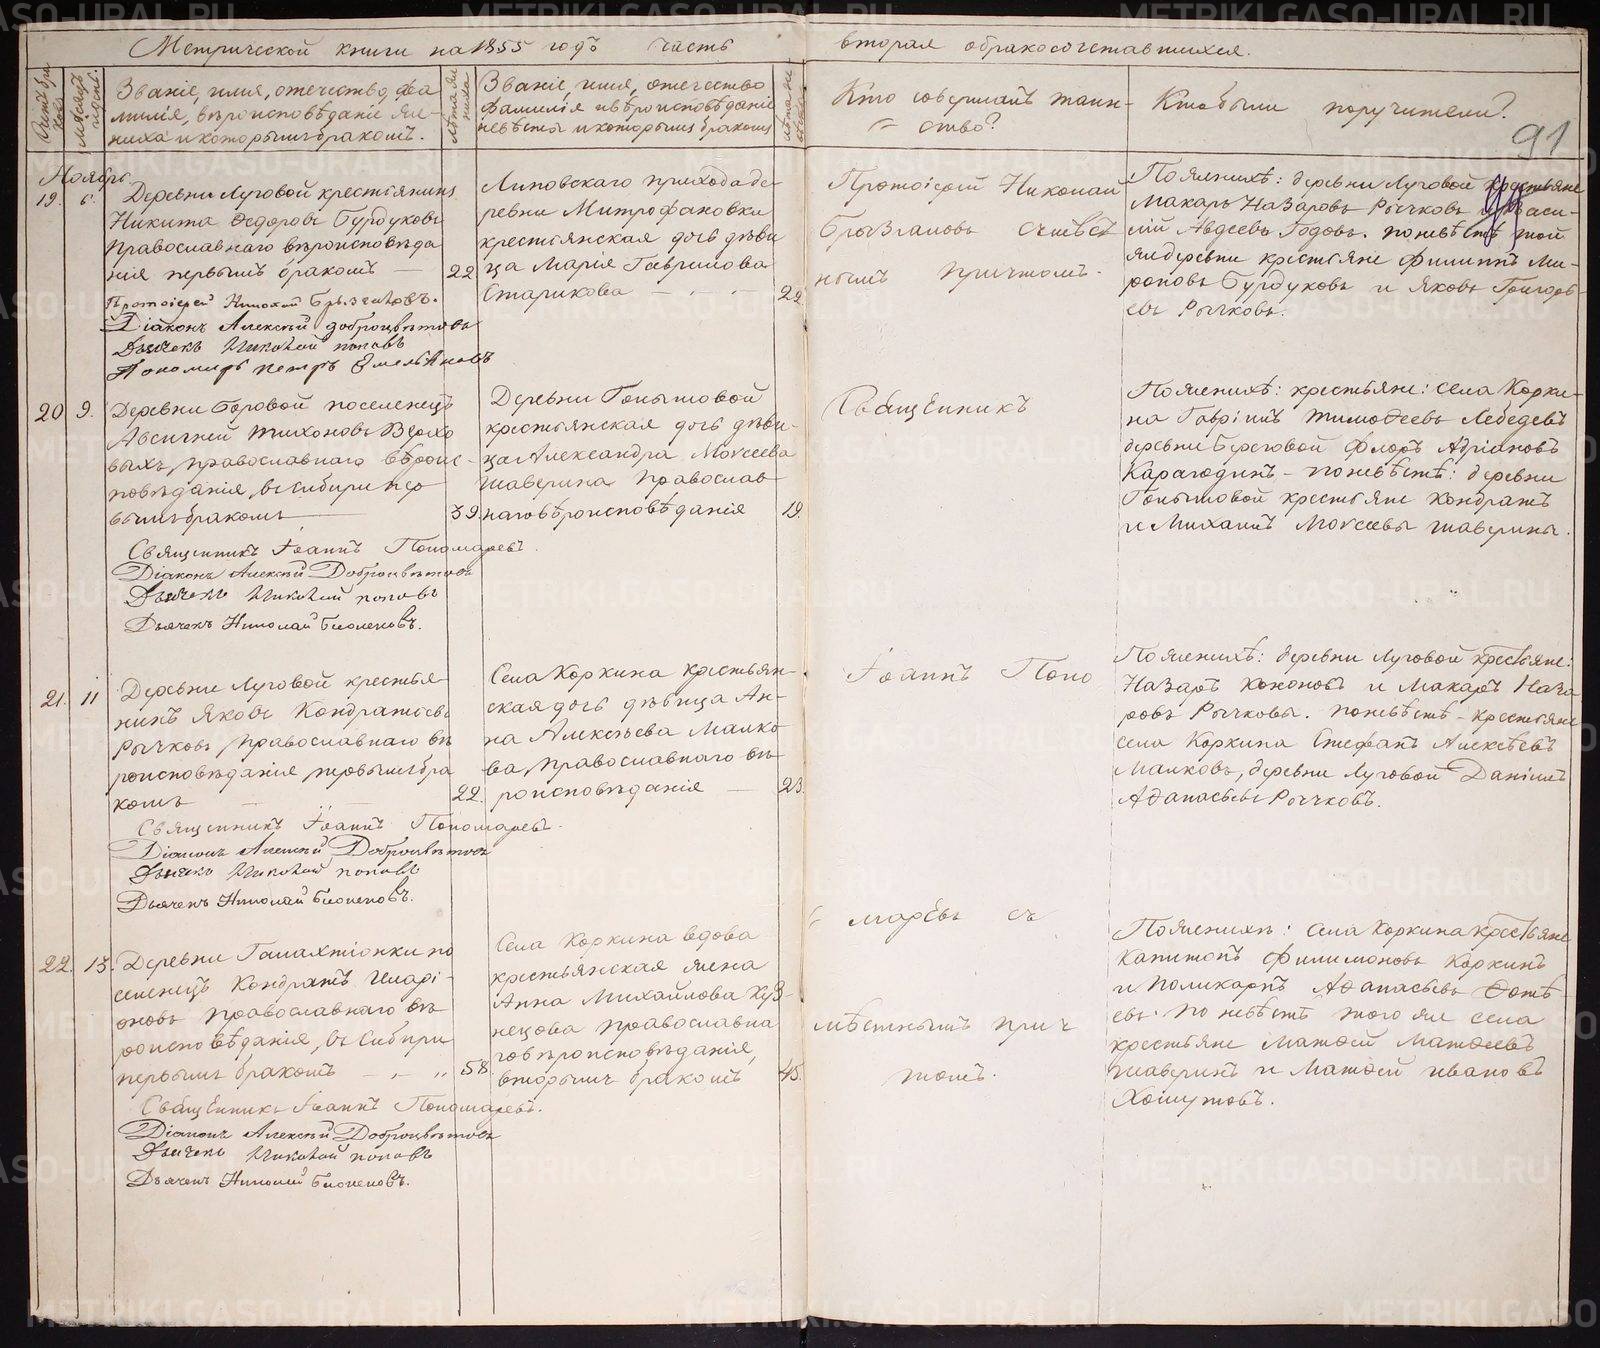 Метрической книги на 1855 годъ часть вторая о бракосочетавшихся.
Счетъ браковъ.
Мѣсяцъ и день.
Званіе, имя, отечество, фа-
милія, вѣроисповѣданіе же-
ниха и которымъ бракомъ.
Лѣта жениха
Званіе, имя, отечество
фамилія и вѣроисповѣданіе
невѣсты и которымъ бракомъ
Лѣта невѣсты
Кто совершалъ таин-
ство?
Кто были поручители?
91
Ноябрь
19. 6.
Деревни Луговой крестьянинъ
Никита Ѳедоровъ Бурдуковъ
православнаго вѣроисповѣда
нія первымъ бракомъ —
22
Протоіерей Николай Брызгаловъ.
Діаконъ Алексѣй Доброцвѣтовъ
Дьячекъ Николай Поповъ
Пономарь Петръ Емельяновъ
Липовскаго прихода де-
ревни Митрофановки
крестьянская дочь дѣви
ца Марія Гаврилова
Старикова — - -
22
Протоіерей Николай
Брызгаловъ съ мѣст
нымъ причтомъ.
По женихѣ: деревни Луговой крестьяне
Макаръ Назаровъ Рычковъ и Васи-
лій Авдеевъ Годовъ. по невѣстѣ той
же деревни крестьяне Филиппъ Ми-
роновъ Бурдуковъ и Яковъ Григорь-
евъ Рычковъ.
20 9.
Деревни Боровой поселенецъ
Тихоновъ
православнаго вѣроис-
повѣданія, въ Сибири пер
вымъ бракомъ —
39.
Священникъ Іоаннъ Пономаревъ.
Діаконъ Алексѣй Доброцвѣтовъ
Дьячекъ Николай Поповъ
Дьячекъ Николай
Деревни Гопытовой
крестьянская дочь дѣви-
ца Александра Моисеева
Шаверина православ
наго вѣроисповѣданія
19.
Священникъ
По женихѣ: крестьяне: села Корки-
на Гавріилъ Тимоѳеевъ Лебедевъ
деревни Береговой Флоръ Адріановъ
Карагодинъ - по невѣстѣ: деревни
Гопытовой крестьяне Кондратъ
и Михаилъ Моисеевы Шаверины.
21. 11
Деревни Луговой крестья
нинъ Яковъ Кондратьевъ
Рычковъ, православнаго вѣ
роисповѣданія первымъ бра
комъ — —
22.
Священникъ Іоаннъ Пономаревъ.
Діаконъ Алексѣй Доброцвѣтовъ
Дьячекъ Николай Поповъ
Дьячекъ Николай
Села Коркина крестьян-
ская дочь дѣвица Ан-
на Алексѣева Малко
ва, православнаго вѣ
роисповѣданія —
23.
Іоаннъ Поно
По женихѣ: деревни Луговой крестьяне:
Назаръ Кононовъ и Макаръ Наза
ровъ Рычковы. по невѣстѣ - крестьяне
села Коркина Стефанъ Алексѣевъ
Малковъ, деревни Луговой Даніилъ
Аѳанасьевъ Рычковъ.
22. 13.
Деревни Галахтіонки по
селенецъ Кондратъ Иларі-
оновъ православнаго вѣ
роисповѣданія, въ Сибири
первымъ бракомъ - - "
58
Священникъ Іоаннъ Пономаревъ.
Діаконъ Алексѣй Доброцвѣтовъ
Дьячекъ Николай Поповъ
Дьячекъ Николай
Села Коркина вдова
крестьянская жена
Анна Михайлова Куз-
нецова православна
го вѣроисповѣданія,
вторымъ бракомъ
45.
= маревъ съ
мѣстнымъ прич
томъ.
По женихѣ: села Коркина крестьяне
Капитонъ Филимоновъ Коркинъ
и Поликарпъ Аѳанасьевъ Ѳотѣ-
евъ. по невѣстѣ того же села
крестьяне Матѳей Матѳеевъ
Шаверинъ и Матѳей Ивановъ
Хомутовъ.